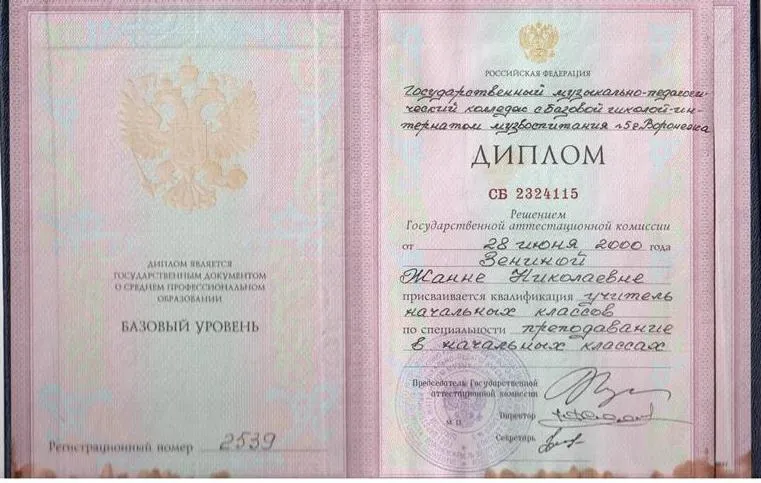 ДИПЛОМ ЯВЛЯЕТСЯ
ГОСУДАРСТВЕННЫМ ДОКУМЕНТОМ
О СРЕДНЕМ ПРОФЕССИОНАЛЬНОМ
ОБРАЗОВАНИИ
БАЗОВЫЙ УРОВЕНЬ
Регистрационный номер 2539
РОССИЙСКАЯ ФЕДЕРАЦИЯ
Государственный музыкально-педагоги-
ческий колледж с базовой школой-ин-
тернатом музвоспитания №5 г. Воронежа
ДИПЛОМ
СБ 2324115
Решением
Государственной аттестационной комиссии
от 28 июня 2000 года
Зениной
Жанне Николаевне
присваивается квалификация учитель
начальных классов
по специальности преподавание
в начальных классах
Председатель Государственной
аттестационной комиссии
Директор
М. П.
Секретарь